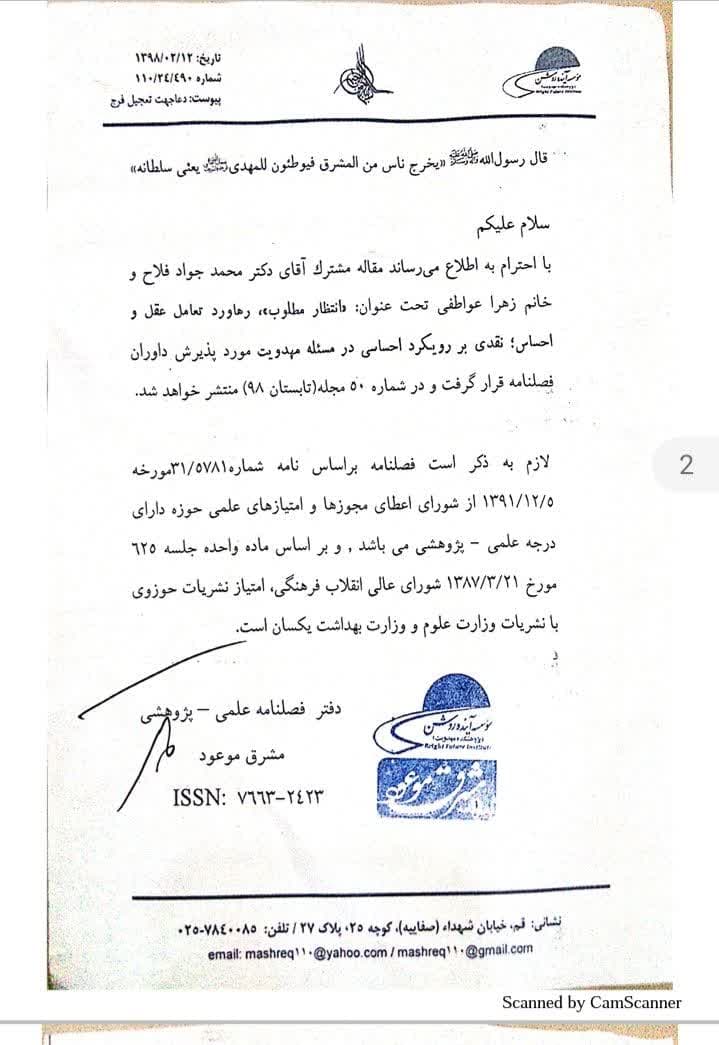 تاریخ: ۱۳۹۸/۰۲/۱۲
شماره ۱۱۰/۲٤/٤۹۰
پیوست: دعاجهت تعجیل فرج
موسسه آینده روشن
Bright Future Institute
قال رسول‌الله ﷺ «یخرج ناس من المشرق فیوطئون للمهدی یعنی سلطانه»
سلام علیکم
با احترام به اطلاع می‌رساند مقاله مشترك آقای دکتر محمد جواد فلاح و
خانم زهرا عواطفی تحت عنوان: «انتظار مطلوب»، رهاورد تعامل عقل و
احساس؛ نقدی بر رویکرد احساسی در مسئله مهدویت مورد پذیرش داوران
فصلنامه قرار گرفت و در شماره ۵۰ مجله(تابستان ۹۸) منتشر خواهد شد.
لازم به ذکر است فصلنامه براساس نامه شماره۳۱/۵۷۸۱مورخه
۱۳۹۱/۱۲/۵ از شورای اعطای مجوزها و امتیازهای علمی حوزه دارای
درجه علمی – پژوهشی می باشد , و بر اساس ماده واحده جلسه ٦۲۵
مورخ ۱۳۸۷/۳/۲۱ شورای عالی انقلاب فرهنگی، امتیاز نشریات حوزوی
با نشریات وزارت علوم و وزارت بهداشت یکسان است.
د
موسسه آینده روشن
(پژوهشکده مهدویت)
Bright Future Institute
مشرق موعود
دفتر فصلنامه علمی – پژوهشی
مشرق موعود
ISSN: ۷٦٦۳-۲٤۲۳
نشانی: قم، خیابان شهداء (صفاییه)، کوچه ۲۵، پلاک ۲۷ / تلفن: ۷۸٤۰۰۸۵-۰۲۵
email: mashreq۱۱۰@yahoo.com / mashreq۱۱۰@gmail.com
2
Scanned by CamScanner